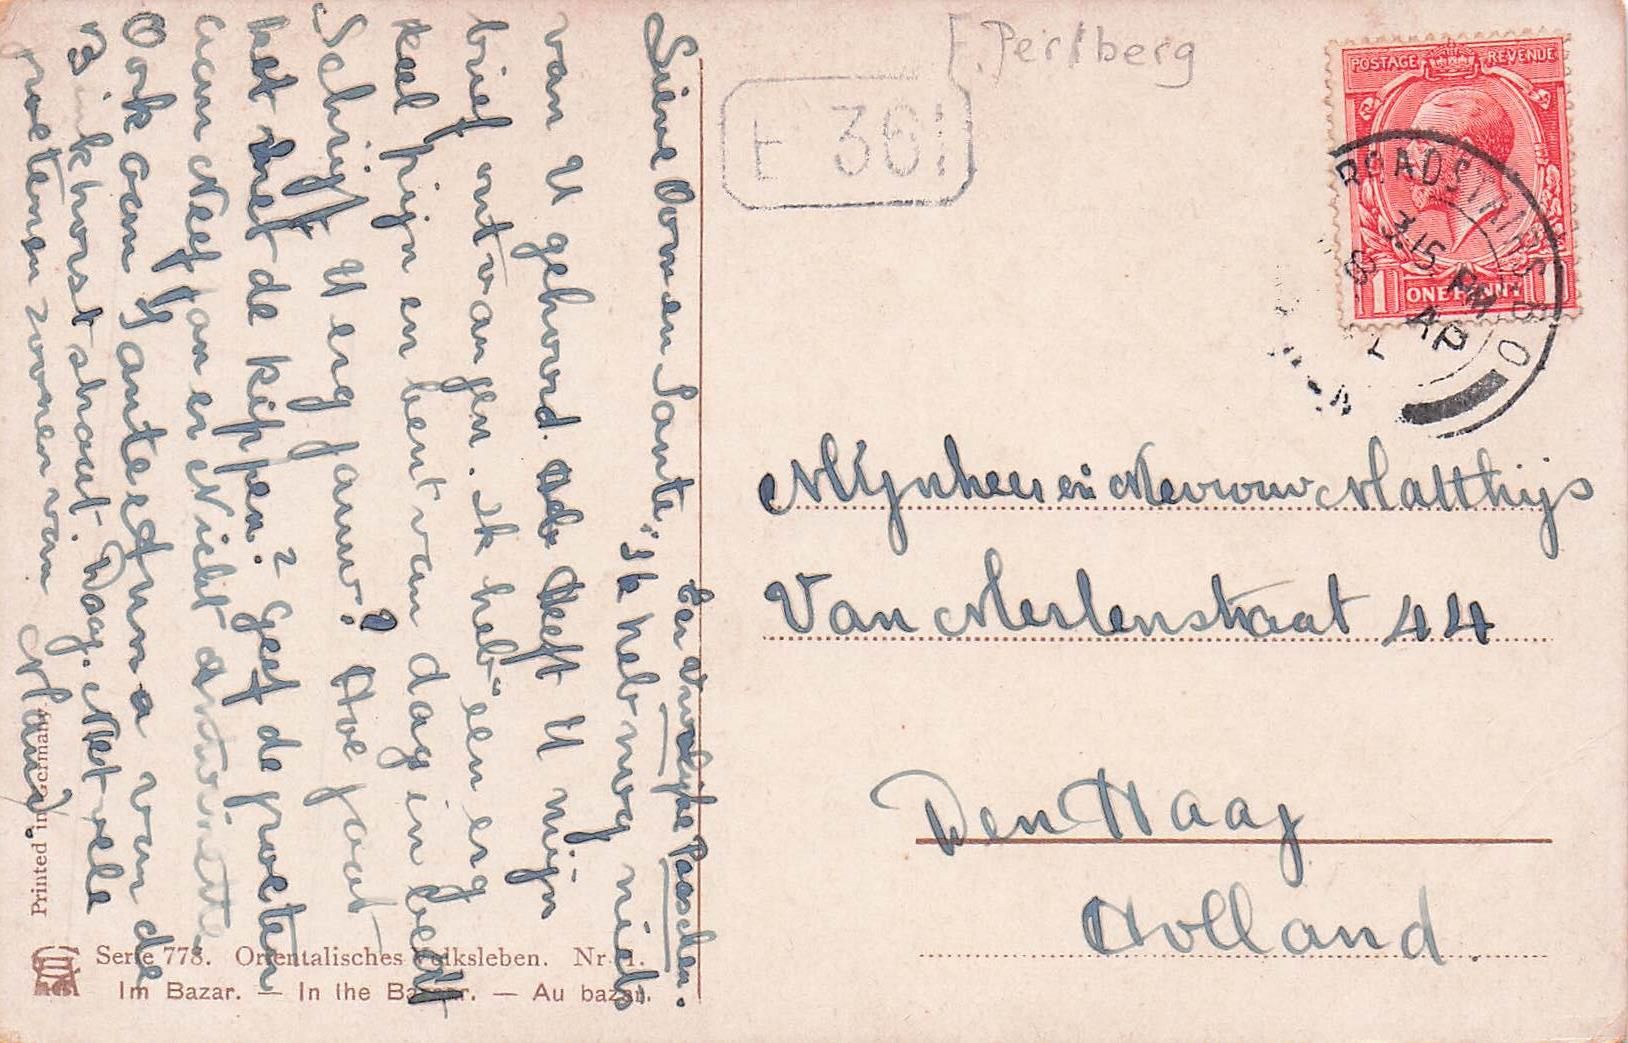 F. Perlberg
E 361
POSTAGE REVENUE
1 ONE PENNY 1
BROADSTAIRS S.O
3.15 PM
8 AP
Een Vrolijke Paaschen.
Lieve Oom en Tante, Ik heb nog niets
van U gehoord. Heeft U mijn
brief ontvangen. Ik heb een erg
keel pijn en bent van dag in bedt
Schrijft U erg gauw? Hoe gaat
het met de kippen? Geef de groeten
aan Neef Jan en Nicht
Ook aan Tante van de
Binkhorst straat. Dag. Met vele
groetenen zoenen van
Mijnheer en Mevrouw Matthijs
Van Merlenstraat 44
Den Haag
Holland.
Printed in Germany.
Serie 778. Orientalisches Volksleben. Nr. 1.
Im Bazar. — In the Bazar. — Au bazar.